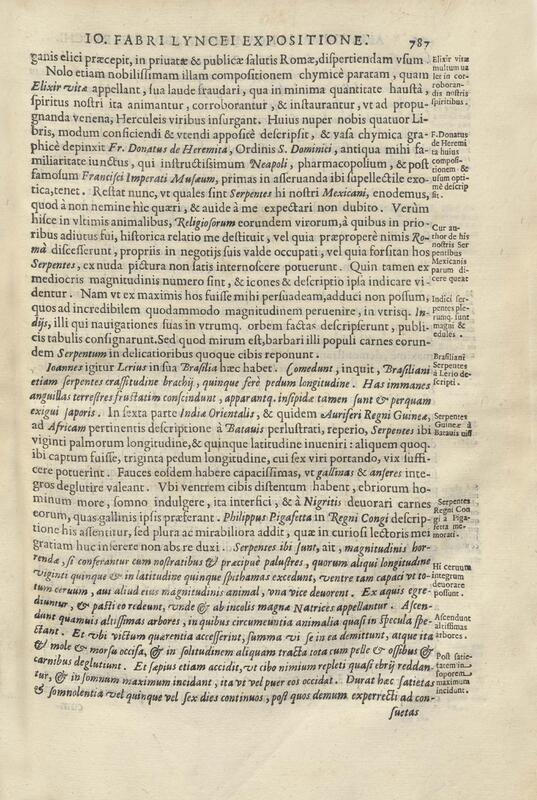 IO. FABRI LYNCEI EXPOSITIONE. 787
ganis elici præcepit, in priuatæ & publicæ salutis Romæ, dispertiendam vsum.
Nolo etiam nobilissimam illam compositionem chymicè paratam, quam
Elixir vitæ appellant, sua laude fraudari, qua in minima quantitate haustâ,
spiritus nostri ita animantur, corroborantur, & instaurantur, vt ad propu-
gnanda venena, Herculeis viribus insurgant. Huius nuper nobis quatuor Li-
bris, modum conficiendi & vtendi appositè descripsit, & vasa chymica gra-
phicè depinxit Fr. Donatus de Heremita, Ordinis S. Dominici, antiqua mihi fa-
miliaritate iunctus, qui instructissimum Neapoli, pharmacopolium, & post
famosum Francisci Imperati Musæum, primas in asseruanda ibi supellectile exo-
tica,tenet. Restat nunc, vt quales sint Serpentes hi nostri Mexicani, enodemus,
quod à non nemine hic quæri, & auide à me expectari non dubito. Verùm
hisce in vltimis animalibus, Religiosorum eorundem virorum, à quibus in prio-
ribus adiutus fui, historica relatio me destituit, vel quia præproperè nimis Ro-
mâ discesserunt, proprijs in negotijs suis valde occupati, vel quia forsitan hos
Serpentes, ex nuda pictura non satis internoscere potuerunt. Quin tamen ex
mediocris magnitudinis numero sint, & icones & descriptio ipsa indicare vi-
dentur. Nam vt ex maximis hos fuisse mihi persuadeam, adduci non possum,
quos ad incredibilem quodammodo magnitudinem peruenire, in vtrisq. In-
dijs, illi qui nauigationes suas in vtrumq. orbem factas descripserunt, publi-
cis tabulis consignarunt. Sed quod mirum est, barbari illi populi carnes eorun-
dem Serpentum in delicatioribus quoque cibis reponunt.
Ioannes igitur Lerius in sua Brasilia hæc habet. Comedunt, inquit, Brasiliani
etiam serpentes crassitudine brachij, quinque ferè pedum longitudine. Has immanes
anguillas terrestres frustatim conscindunt, apparantq. insipidæ tamen sunt & perquam
exigui saporis. In sexta parte Indiæ Orientalis, & quidem Auriferi Regni Guineæ,
ad Africam pertinentis descriptione à Batauis perlustrati, reperio, Serpentes ibi
viginti palmorum longitudine, & quinque latitudine inueniri: aliquem quoq.
ibi captum fuisse, triginta pedum longitudine, cui sex viri portando, vix suffi-
cere potuerint. Fauces eosdem habere capacissimas, vt gallinas & anseres inte-
gros deglutire valeant. Vbi ventrem cibis distentum habent, ebriorum ho-
minum more, somno indulgere, ita interfici, & à Nigritis deuorari carnes
eorum, quas gallinis ipsis præferant. Philippus Pigafetta in Regni Congi descrip-
tione his assentitur, sed plura ac mirabiliora addit, quæ in curiosi lectoris mei
gratiam huc inserere non abs re duxi. Serpentes ibi sunt, ait, magnitudinis hor-
rendæ, si conferantur cum nostratibus & præcipuè palustres, quorum aliqui longitudine
viginti quinque & in latitudine quinque spithamas excedunt, ventre tam capaci vt to-
tum ceruum, aut aliud eius magnitudinis animal, vna vice deuorent. Ex aquis egre-
diuntur, & pasti eo redeunt, vnde & ab incolis magnæ Natrices appellantur. Ascen-
dunt quamuis altissimas arbores, in quibus circumeuntia animalia quasi in specula spe-
ctant. Et vbi victum quærentia accesserint, summa vi se in ea demittunt, atque ita
& mole & morsu occisa, & in solitudinem aliquam tracta tota cum pelle & ossibus &
carnibus deglutiunt. Et sæpius etiam accidit, vt cibo nimium repleti quasi ebrij reddan-
tur, & in somnum maximum incidant, ita vt vel puer eos occidat. Durat hæc satietas
& somnolentia vel quinque vel sex dies continuos, post quos demum experrecti ad con-
suetas
Elixir vitæ
multum ua
let in cor-
roboran-
dis nostris
spiritibus.
F. Donatus
de Heremi
ta huius
composi-
tionem &
usum opti-
mè descrip
sit.
Cur au-
thor de his
nostris Ser
pentibus
Mexicanis
parum di-
cere queat
Indici ser-
pentes ple-
rumq. sunt
magni &
edules.
Brasiliani
Serpentes
à Lerio de-
scripti.
Serpentes
Guineæ à
Batauis uisi
Serpentes
Regni Con
gi à Piga-
fetta me-
morati.
Hi ceruum
integrum
deuorare
possunt.
Ascendunt
altissimas
arbores.
Post satie-
tatem in
soporem
maximum
incidunt.